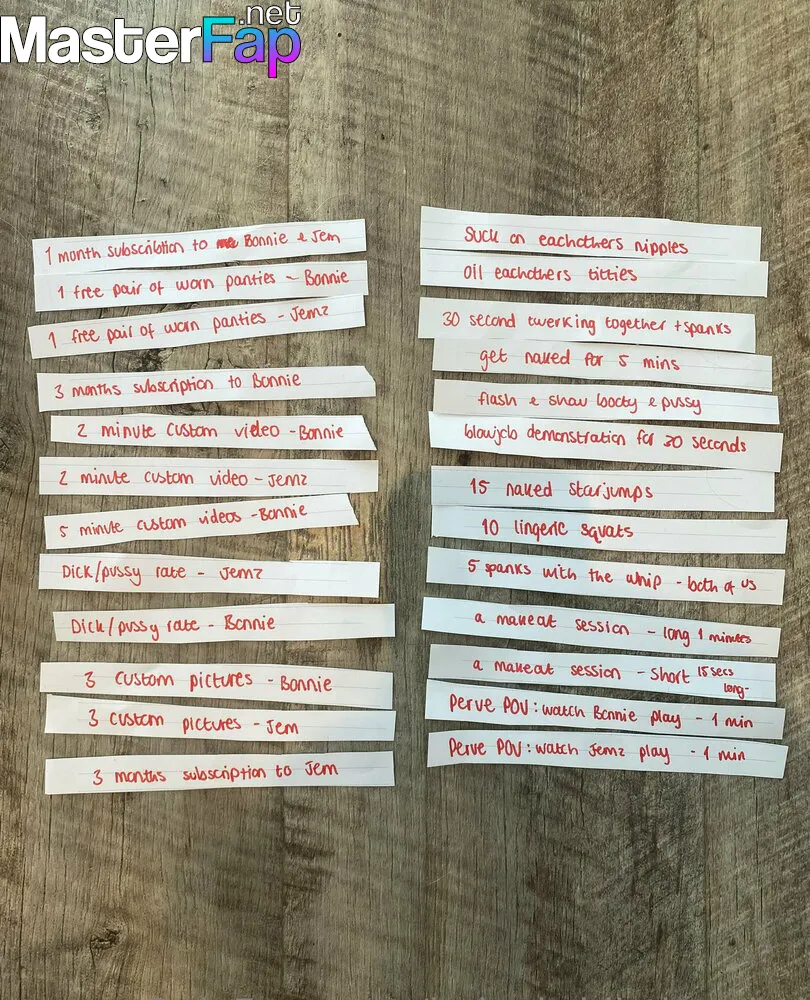 MasterFap
.net
1 month subscribtion to me Bonnie & Jem
1 free pair of worn panties - Bonnie
1 free pair of worn panties - Jemz
3 months subscription to Bonnie
2 minute custom video - Bonnie
2 minute custom video - Jemz
5 minute custom videos - Bonnie
Dick/pussy rate - Jemz
Dick/pussy rate - Bonnie
3 custom pictures - Bonnie
3 custom pictures - Jem
3 months subscription to Jem
Suck on eachothers nipples
Oil eachothers titties
30 second twerking together + spanks
get naked for 5 mins
flash & show booty & pussy
blowjob demonstration for 30 seconds
15 naked starjumps
10 lingerie squats
5 spanks with the whip - both of us
a makeout session - long 1 minutes
a makeout session - short 15 secs
long-
Perve POV: watch Bonnie play - 1 min
Perve POV: watch Jemz play - 1 min